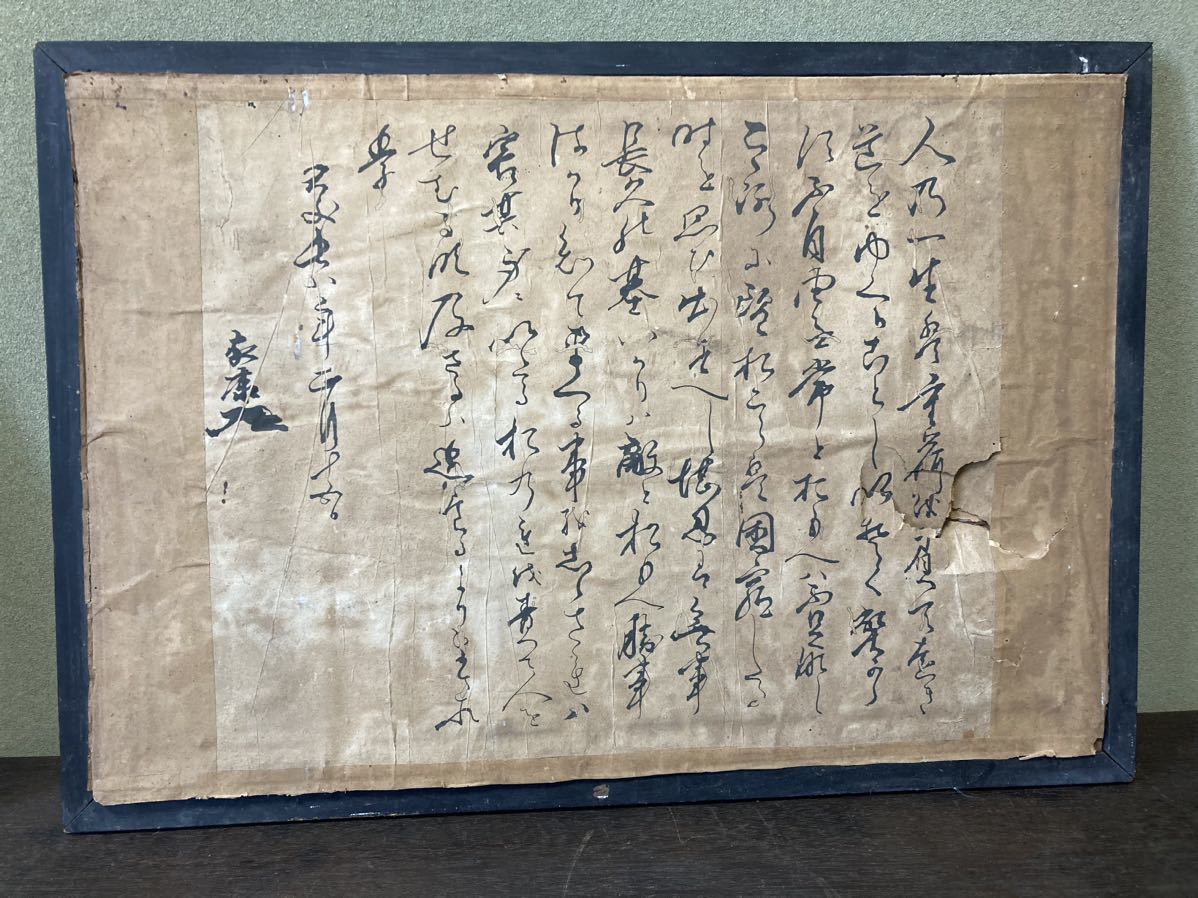 人乃一生は重荷を負て遠き
道をゆくかことしいそくへか
らす不自由を常とおもへは不足なし
こゝろに望おこらは困窮したる
時を思ひ出すへし堪忍は無事
長久の基いかりは敵とおもへ勝事
はかり知てまくる事をしらされは
害其身にいたるおのれを責て人を
せむるな及さるは過たるよりまされ
年正月十五日
家康